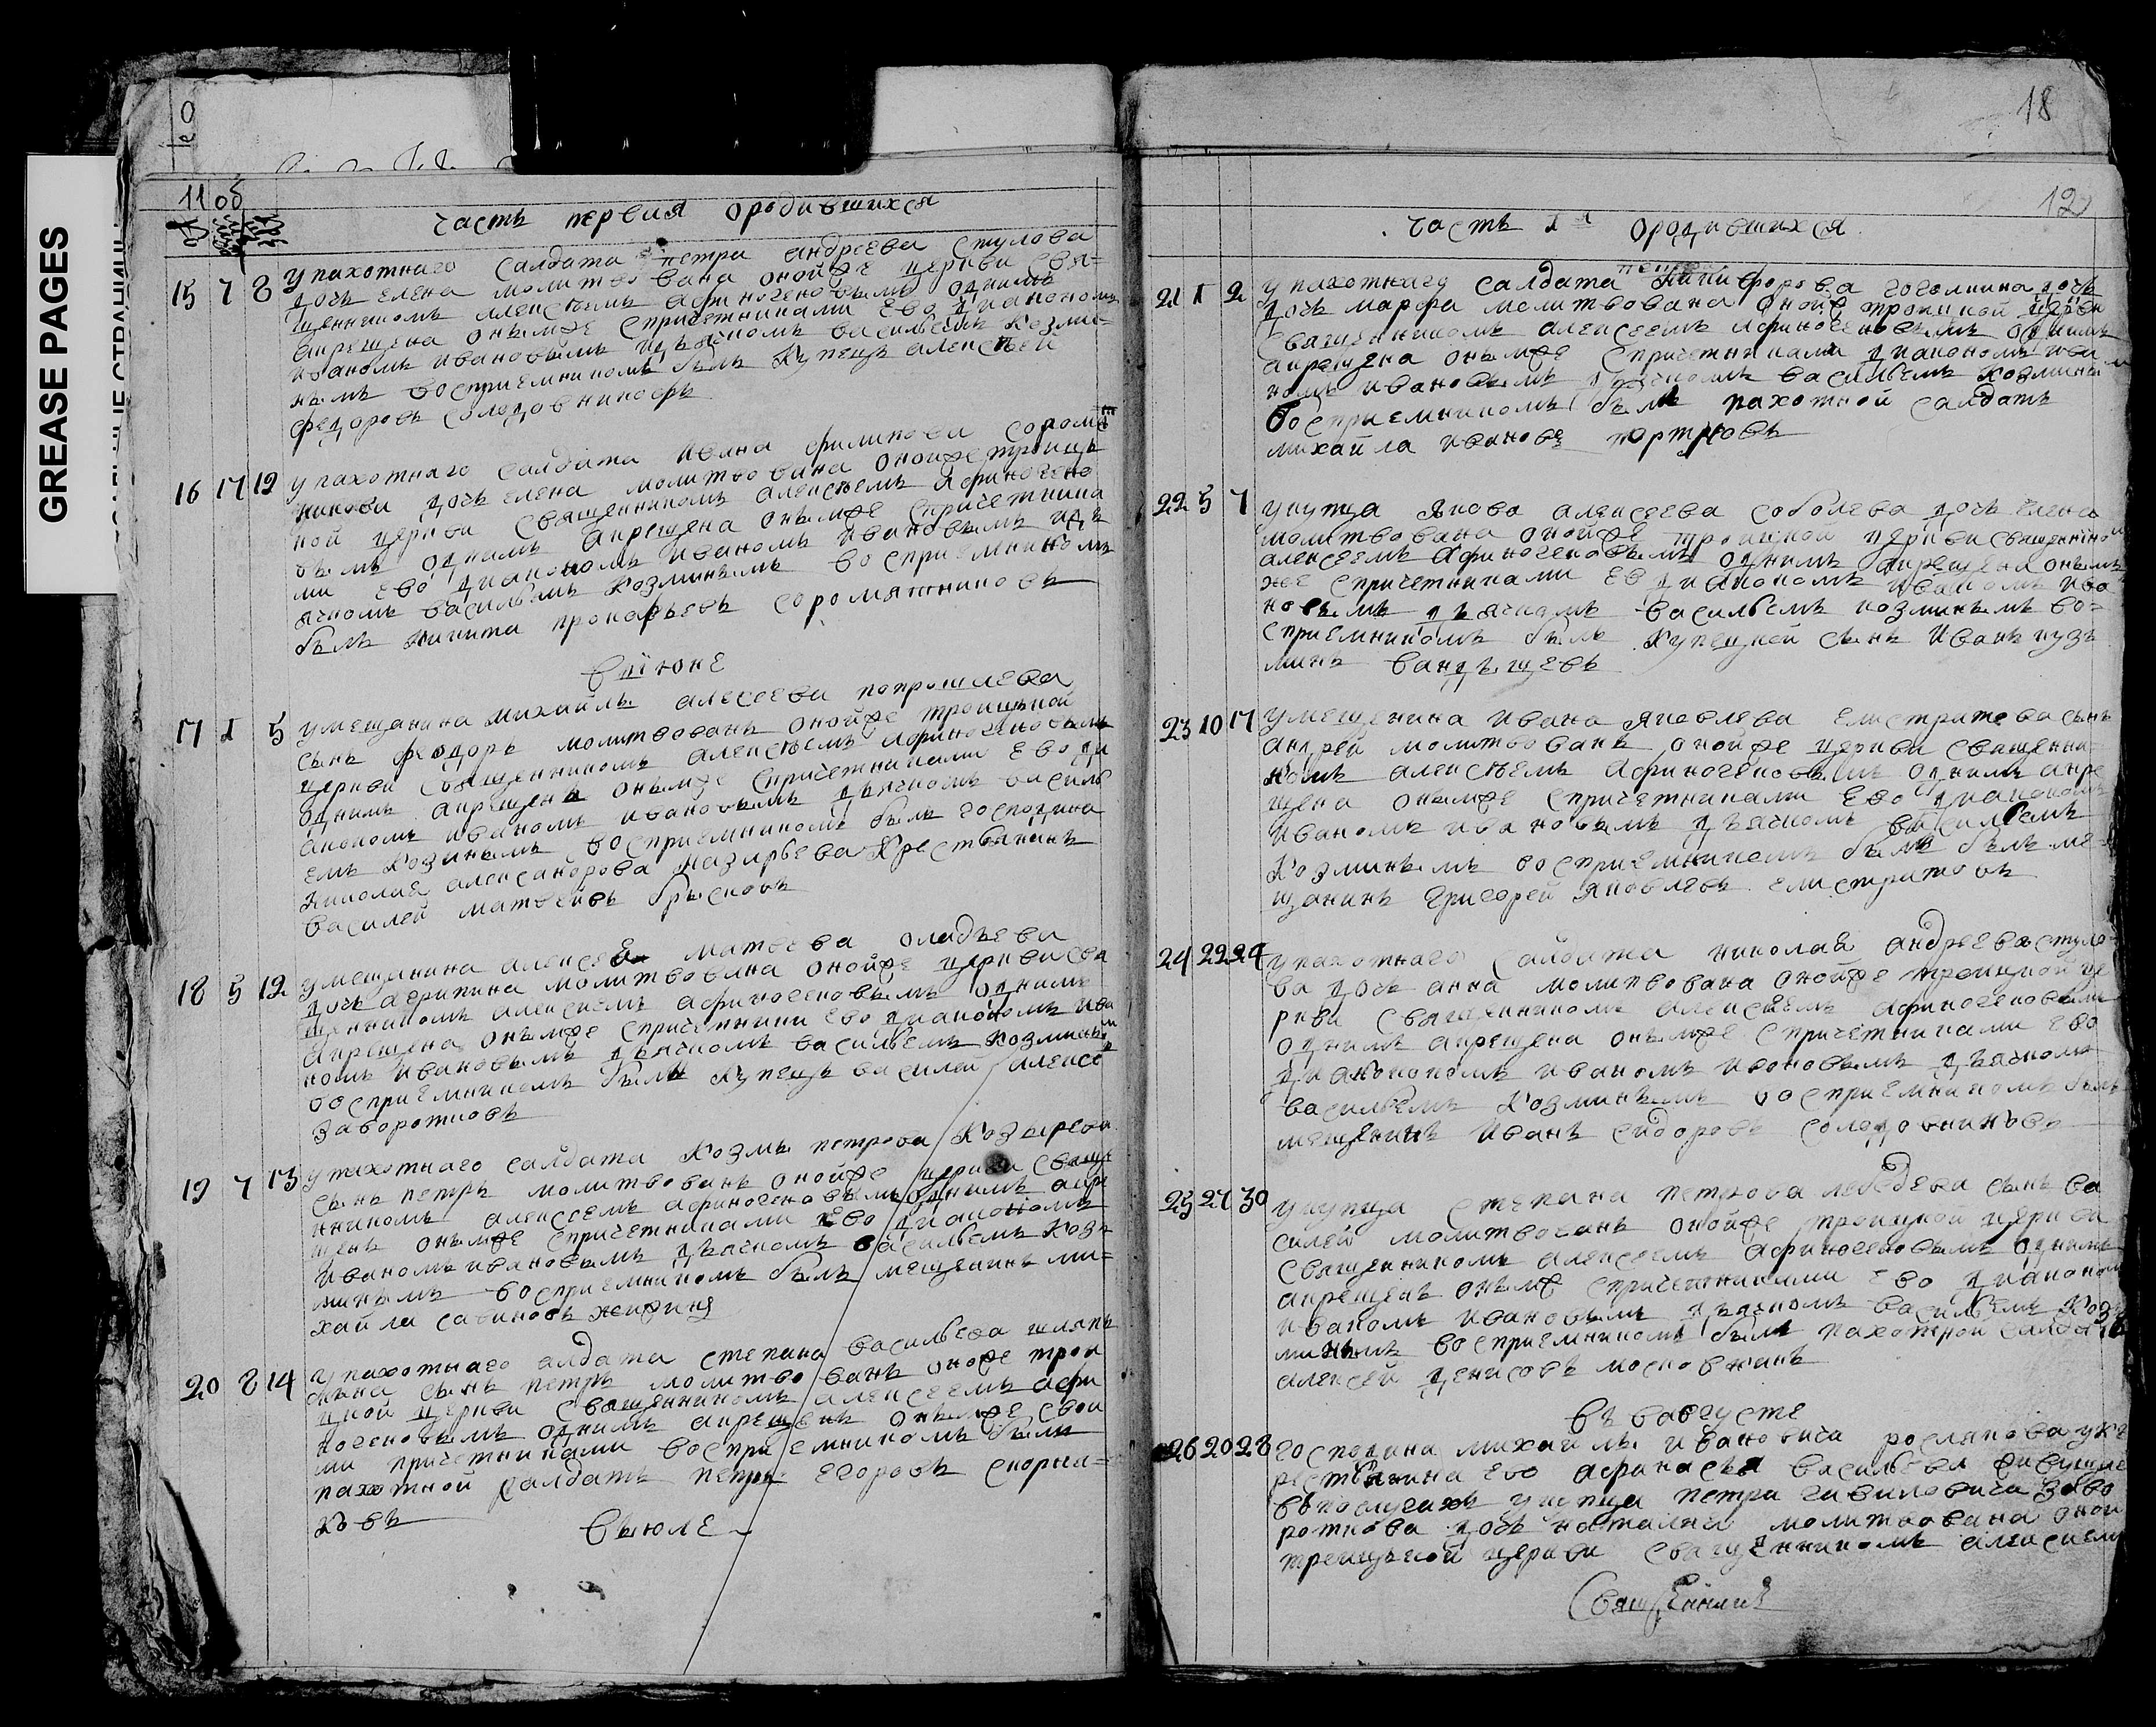 18
GREASE PAGES
11 об
часть первия ородившихся
15 7 8 у пахотнаго салдата петра андреева стулова
дочь елена молитвована онойже церкви свя=
щенникомъ алексѣемъ афиногеновымъ однимъ
акрещена онымже спричетниками ево диакономъ
иваномъ ивановымъ дьячкомъ васильемъ козми=
нымъ восприемникомъ былъ купецъ алексѣй
федоровъ солодовниковъ
16 17 19 у пахотнаго салдата ивана филипова соромят
никова дочь елена молитвована онойже троиц
кой церкви священникомъ алексѣемъ афиногено
вымъ однимъ акрещена онымже спричетника
ми ево диакономъ иваномъ ивановымъ идь
ячкомъ васильемъ козминымъ восприемникомъ
былъ никита прокофьевъ соромятниковъ
виюне
17 1 5 умещанина михайлы алексеева
сынъ феодоръ молитвованъ онойже троицкой
церкви священникомъ алексѣемъ афиногеновымъ
однимъ акрещенъ онымже спричетниками ево ди
акономъ иваномъ ивановымъ дьячкомъ василь
емъ козинымъ восприемникомъ былъ господина
николая александрова назарьева крестьянинъ
василей матвеивъ брысковъ
18 5 12 умещанина алексея матвева оладьева
дочь агрипина молитвована онойже церкви свя
щенникомъ алексиемъ афиногеновымъ однимъ
акрещена онымже спричетники ево диакономъ ива
номъ ивановымъ дьячкомъ васильемъ козминым
восприемникомъ былъ купецъ василей алексе
заворотковъ
19 7 13 у пахотнаго салдата козмы петрова козырева
сынъ петръ молитвованъ онойже церкви свящ
нникомъ алексеемъ афиногеновымъ однимъ акре
щенъ онымже спричетниками ево диакономъ
иваномъ ивановымъ дьячкомъ васильемъ коз
минымъ восприемникомъ былъ мещенинъ ми=
хайла савиновъ
20 8 14 у пахотнаго алдата степана васильева шляп
кина сынъ петръ молитвованъ оноже трои
цкой церкви священникомъ алексеемъ афи
ногеновымъ однимъ акрещенъ онымже свои
ми причетниками восприемникомъ были
пахотной салдатъ петръ егоровъ скорня=
ковъ
виюле
12
часть 1я ородившихся
21 1 2 упахотнаго салдата никифорова дочь
дочь марфа молитвована онойже троицкой церкви
священникомъ алексеемъ афиногеновымъ однимъ
акрещена онымже спричетниками диакономъ ива
номъ ивановымъ дьячкомъ васильемъ козмины
восприемникомъ былъ пахотной салдатъ
михайла ивановъ портновъ
22 5 7 укупца якова алексеева соболева дочь елена
молитвована онойже троицкой церкви священником
алексеемъ афиногеновымъ однимъ акрещена онымъ
же спричетниками ево диакономъ иваномъ ива
новымъ дьячкомъ васильемъ козминымъ во=
сприемникомъ былъ купецкой сынъ иванъ куз
минъ вандышевъ
23 10 17 умещенина ивана яковлева елистратова сынъ
андрей молитвованъ онойже церкви священни=
комъ алексѣемъ афиногеновымъ однимъ акре
щена онымже спричетниками ево диакономъ
иваномъ ивановымъ дьячкомъ васильемъ
козминымъ восприемникомъ былъ былъ ме=
щанинъ григорей яковлевъ елистратовъ
24 22 24 упахотнаго салдата николая андреева стуло
ва дочь анна молитвована онойже троицкой це
ркви священникомъ алексѣемъ афиногеновымъ
однимъ акрещена онымже спричетниками ево
диаконокомъ иваномъ ивоновымъ дьячкомъ
васильемъ козминымъ восприемникомъ былъ
мещенинъ иванъ сидоровъ солодовниковъ
25 27 30 укупца степана петрова лебедева сынъ ва
силей молитвованъ онойже троицкой церкви
священникомъ алексеемъ афиногеновымъ однимъ
акрещенъ онымже спричетниками ево диакономъ
иваномъ ивановымъ дьячкомъ васильемъ коз
минымъ восприемникомъ былъ пахотной салдатъ
алексей денисовъ москвожанъ
въ вавгусте
26 20 28 господина михайлы ивановича рослякова ук
рестьянина ево афанасья васильева живущие
въпослугахъ укупца петра гавиловича заво
роткова дочь наталия молитвована оной
троицкой церкви священникомъ алексием
Священникъ